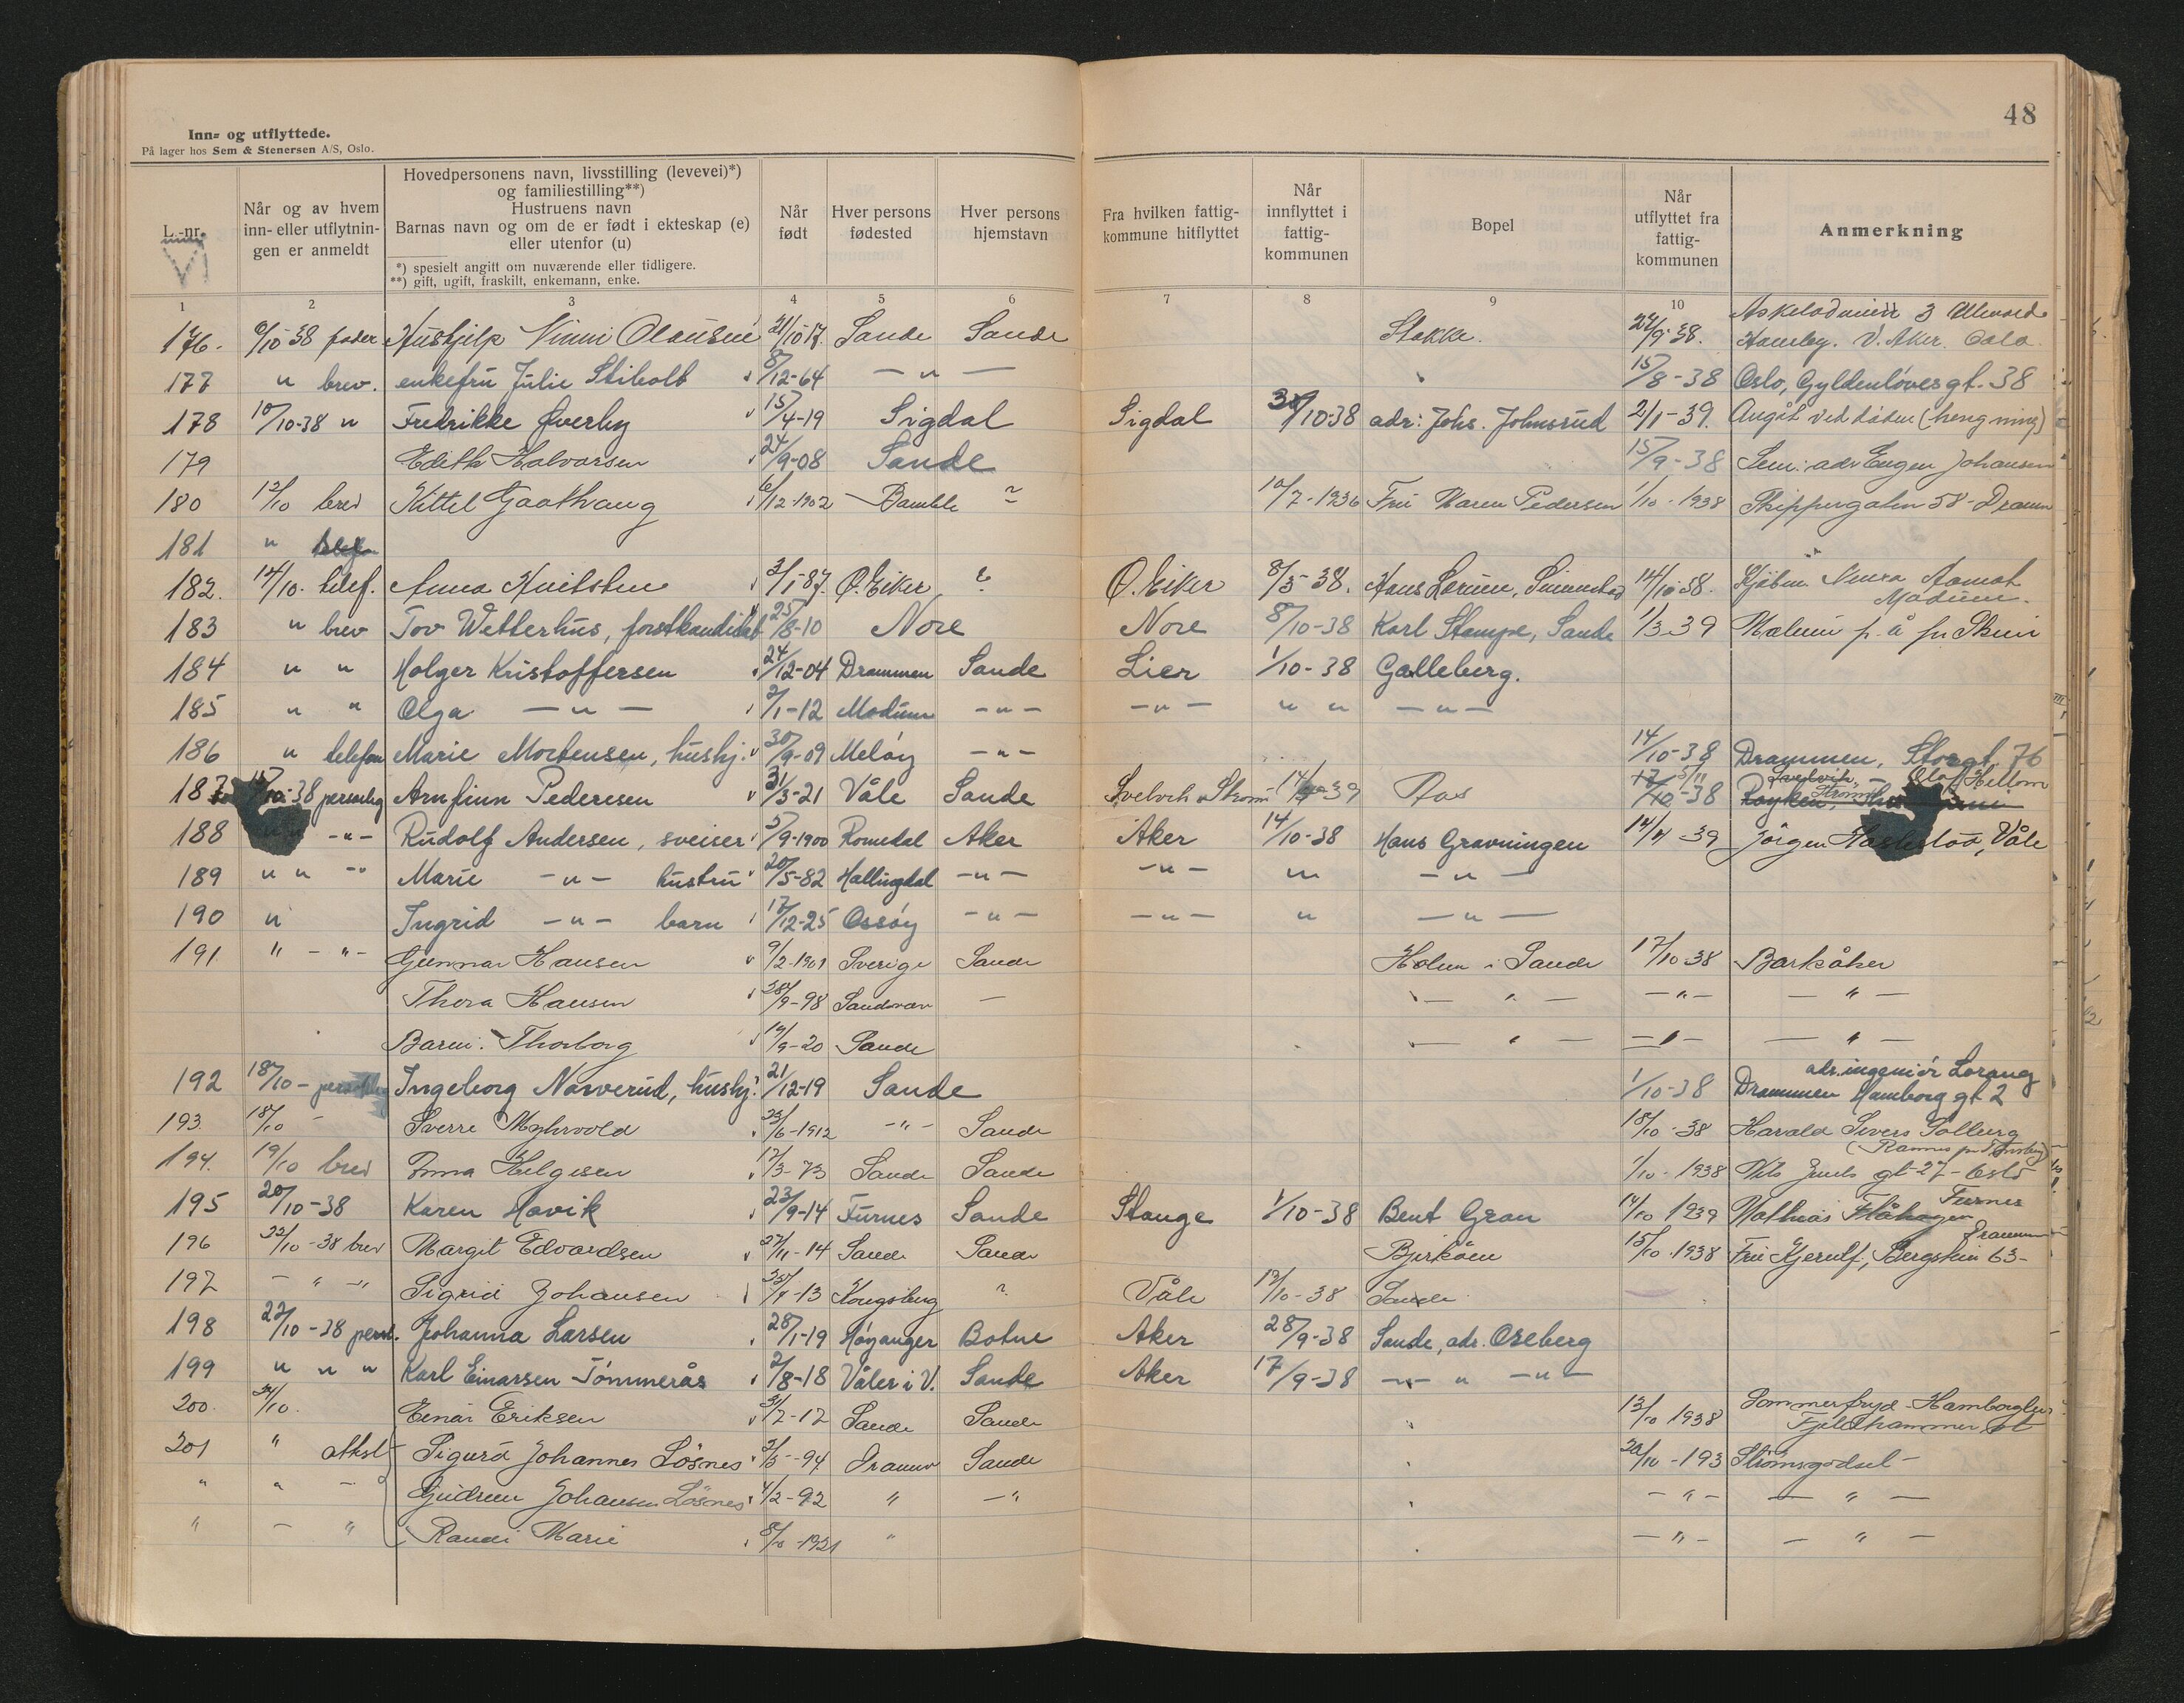 48
Inn- og utflyttede.
På lager hos Sem & Stenersen A/S, Oslo.
L.-nr.
Når og av hvem inn- eller utflytnin- gen er anmeldt
Hovedpersonens navn, livsstilling (levevei)*)
og familiestilling**)
Hustruens navn
Barnas navn og om de er født i ekteskap (e)
eller utenfor (u)
*) spesielt angitt om nuværende eller tidligere.
**) gift, ugift, fraskilt, enkemann, enke.
Når født
Hver persons fødested
Hver persons hjemstavn
Fra hvilken fattig- kommune hitflyttet
Når innflyttet i fattig- kommunen
Bopel
Når utflyttet fra fattig- kommunen
Anmerkning
1 2 3 4 5 6 7 8 9 10
176. 6/10-38 Hushjelp Ninni Olausen 21/10-17. Sande Sande Stokke. 24/9-38. V. Aker Oslo
177 " brev. enkefru Julie Stibolt 8/12-64 — " — 15/8-38 Oslo, Gyldenløvesgt. 38
178 10/10-38 " Fredrikke Øverby 15/4-19 Sigdal Sigdal /10-38 adr: Johs. Johnsrud 2/1-39. Avgåt ved døden (hengning)
179 Edith Halvorsen 24/9-08 Sande 15/9-38 Sem: adr Eugen Johansen
180 12/10 brev Kittel Gaathaug 6/12-1902 Bamble ? 10/7-1936 Fru Maren Pedersen 1/10-1938 Skippergaten 58 - Dramm
181 "
182. 14/10. telef. Anna 3/1-87. Ø. Eiker ? Ø. Eiker 8/5-38. Hans 14/10-38. Aamot
Modum.
183 " brev Tov Wetterhus, forstkandidat 25/8-10 Nore Nore 8/10-38 Karl Stampe, Sande 1/3-39
184 " " Holger Kristoffersen 24/12-04 Drammen Sande Lier 1/10-38 Galleberg.
185 " " Olga — " — 2/1-12 Modum — " — — " — " " — " —
186 " telefon Marie Mortensen, hushj. 30/9-09 Meløy — " — 14/10-38 Drammen, Storgt. 76
187 /10-38 personlig Arnfinn Pedersen 31/3-21 Våle Sande Svelvik Strøm Aas Røyken,
188 — " — Rudolf Andersen, sveiser 5/9-1900 Romedal Aker Aker 14/10-38 Hans Gravningen 14/4-39 Jørgen Våle
189 " " " Marie — " — hustru 20/5-82 Hallingdal — " — — " — " — " —
190 " Ingrid — " — barn 17/12-25 Ossøy — " — — " — " — " —
191 " — " — Gunnar Hansen 9/2-1901 Sverige Sande Holm i Sande 17/10-38 Barkåker
Thora Hansen /9-98 Sandsvær — — " — — " — — " —
Barn: Thorborg 19/9-20 Sande — " — — " — — " —
192 18/10 - personlig Ingeborg Narverud, hushj. 21/12-19 Sande 1/10-38 Drammen Hamborg gt. 2
adr. ingeniør Lorang
193. 18/10 — Sverre Myhrvold 23/6-1912 — " — Sande 18/10-38 Harald Sivers Solberg
194. 19/10 brev Anna Helgesen 17/3-73 Sande Sande 1/10-1938 Nils Juels gt-27- Oslo
195 20/10-38 Karen Hovik 23/9-14 Furnes Sande Stange 1/10-38 Bent Gran 14/10 1939 Mathias Furnes
196 22/10-38 brev Margit Edvardsen 27/11-14 Sande Sande Bjerkøen 15/10-1938 Fru Kjerulf, Bergstien 63-
197 — " — " Sigrid Johansen -13 Kongsberg ? Våle 12/10-38 Sande
198 22/10-38 pers. Johanna Larsen 28/1-19 Høyanger Botne Aker 28/9-38 Sande, adr. Oseberg
199 " " " Karl Einarsen Tømmerås 2/8-18 Våler i V. Sande Aker 17/9-38 — " — " —
200. 24/10. Einar Eriksen 31/7-12 Sande Sande 13/10 1938 Sommerfryd
Fjeldhammer st
201 " attest Sigurd Johannes Løsnes 2/5-94 Dramm Sande 20/10-193 Strømsgodset -
" " — Gudrun Johansen Løsnes 4/2-92 " — " — " — — " —
" — " Randi Marie 8/10-1921 " — " — — " —